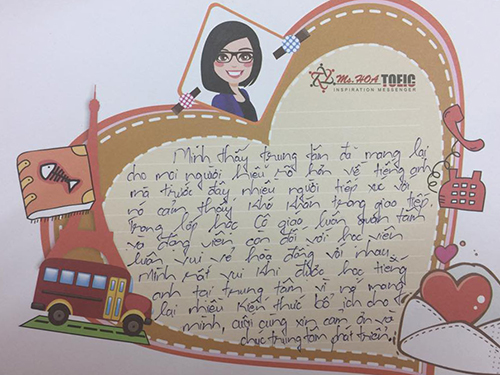 Ms.HOA TOEIC
INSPIRATION MESSENGER
Mình thấy trung tâm đã mang lại
cho mọi người hiểu rõ hơn về tiếng anh
mà trước đây nhiều người tiếp xúc với
nó cảm thấy khó khăn trong giao tiếp.
Trong lớp học Cô giáo luôn quan tâm
và động viên, còn đối với học viên
luôn vui vẻ hòa đồng với nhau.
Mình rất vui khi được học tiếng
anh tại trung tâm vì nó mang
lại nhiều kiến thức bổ ích cho
mình, cuối cùng xin cảm ơn và
chúc trung tâm phát triển!